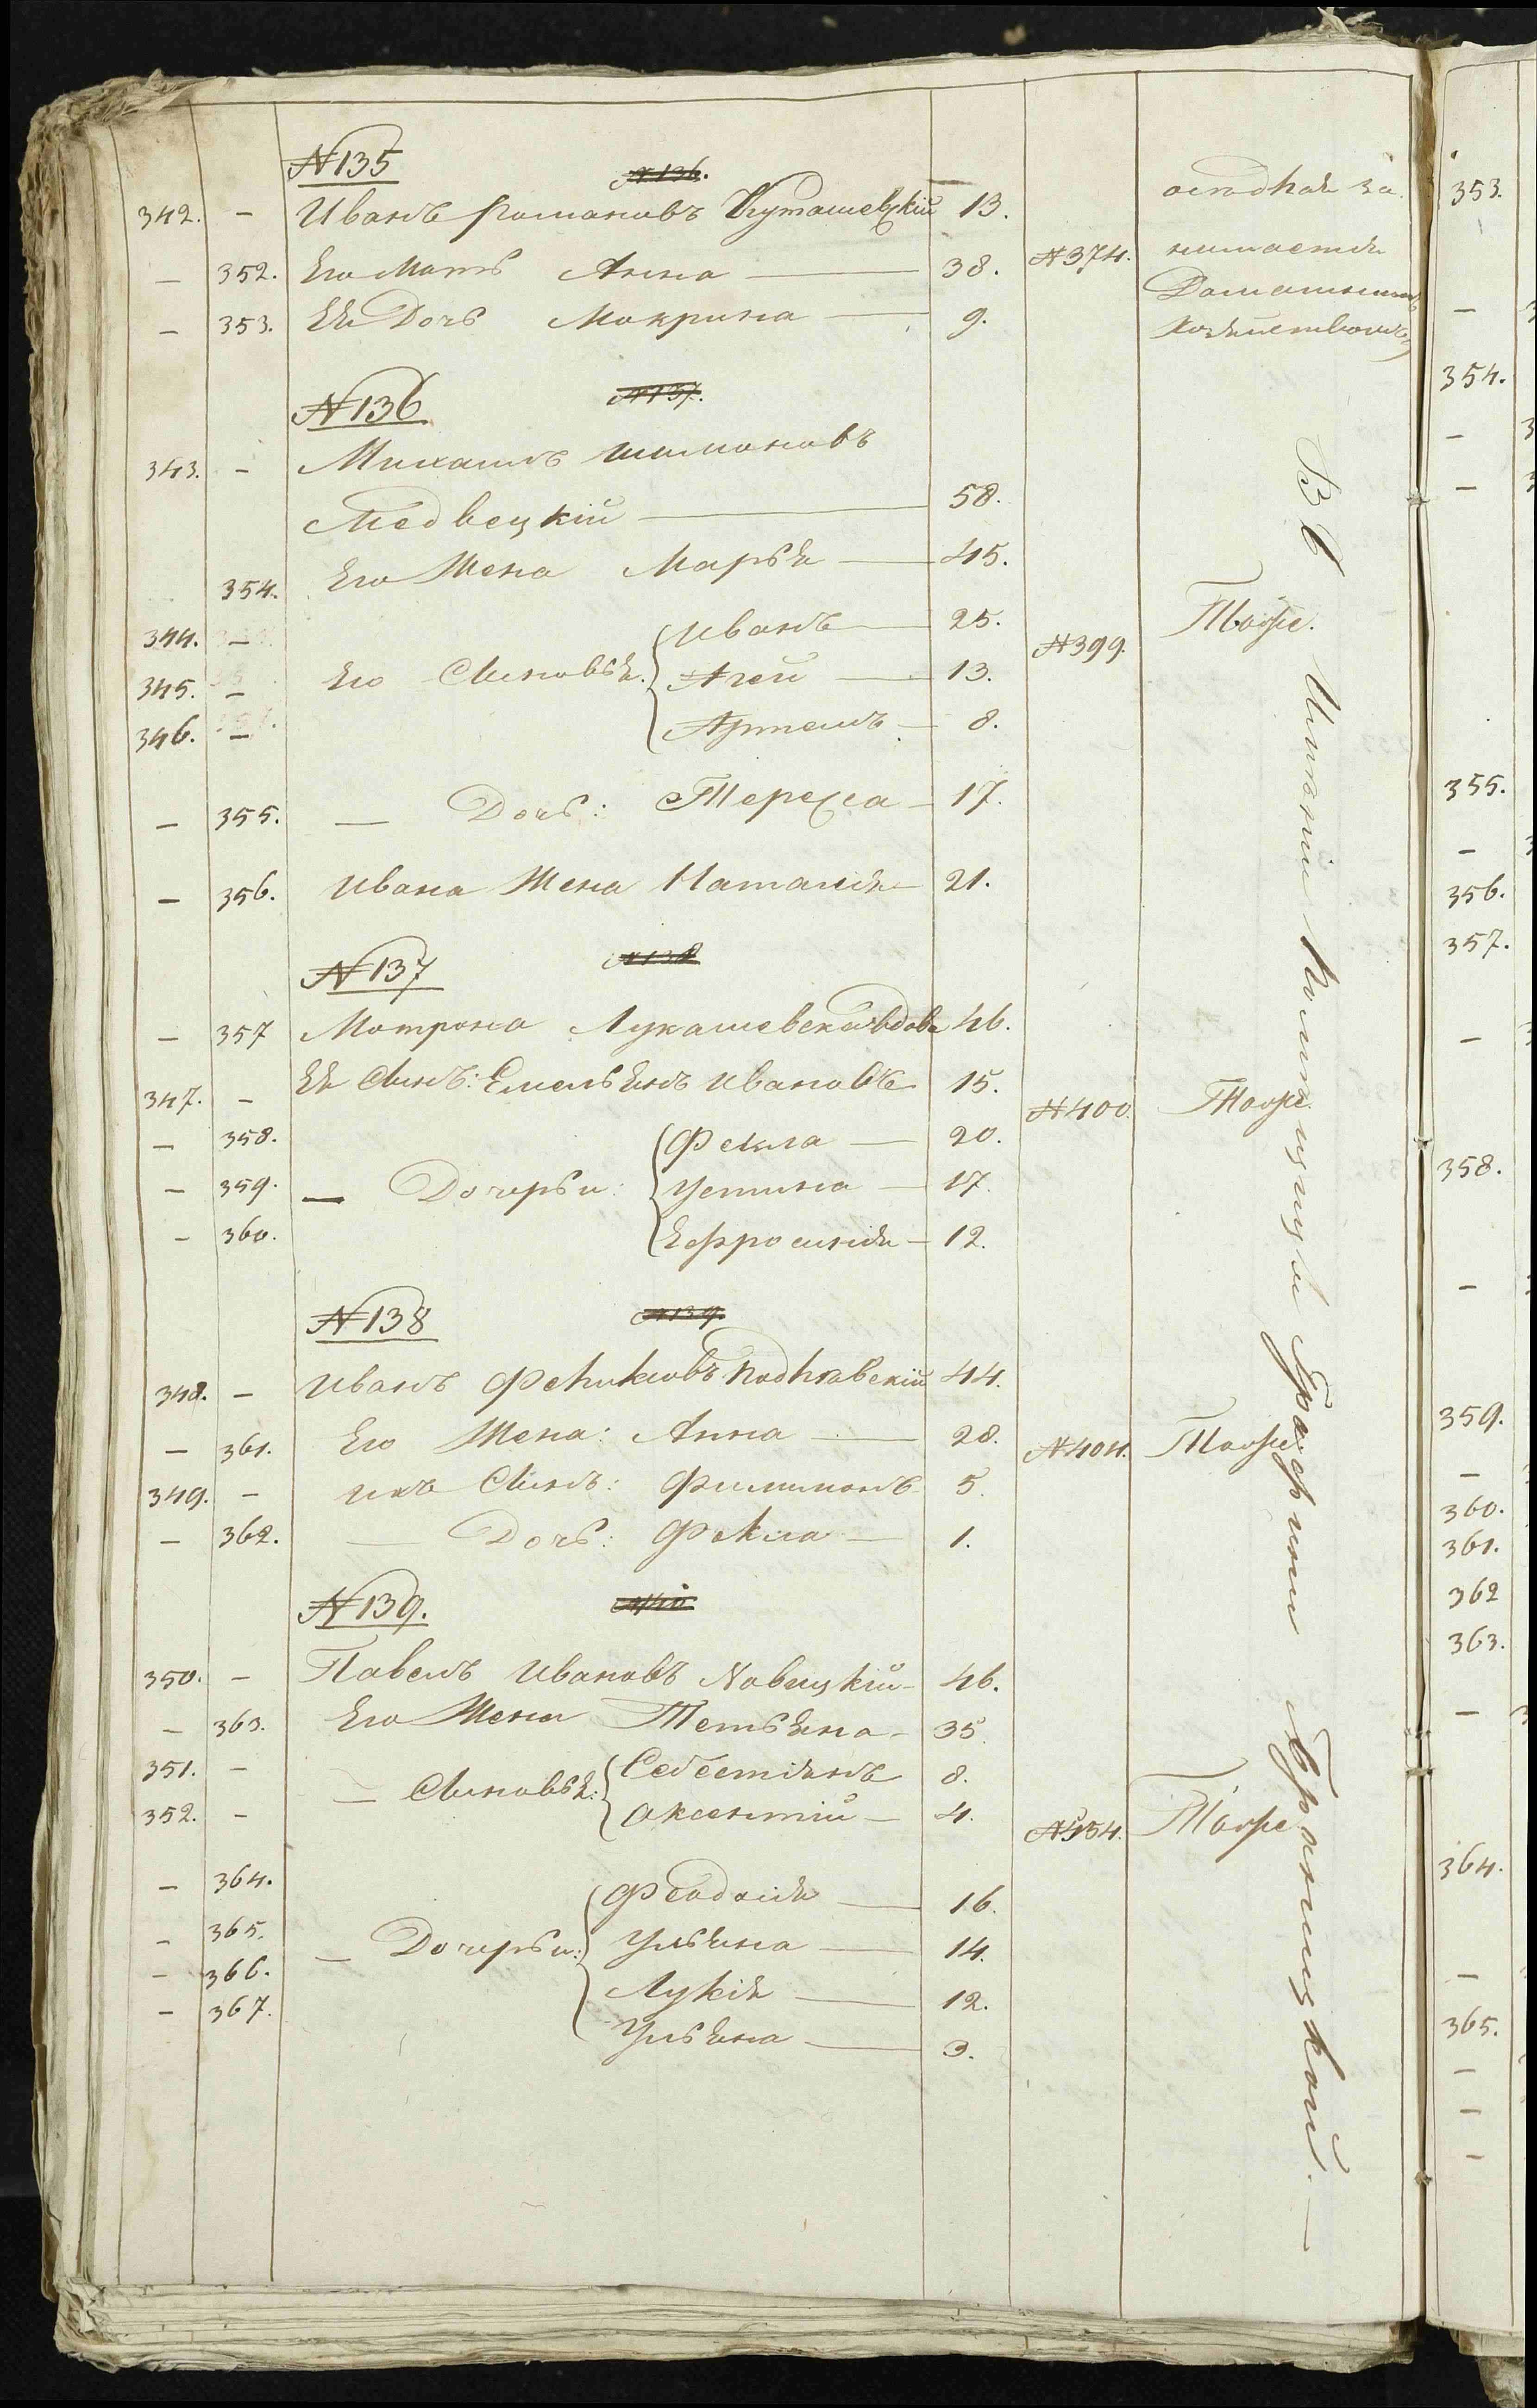 №135 №136.
342. – Иванъ Романовъ Куташевскій 13.
– 352. Его Мать Анна — 38. №374.
– 353. Ея Дочь Мокрина — 9.
оседная за
нимается
Домашнимъ
хозяйствомъ
№136 №137.
343. – Михаилъ Шимоновъ
Медвецкій — 58.
354. Его Жена Марья — 45.
344. – Иванъ — 25. №399. Тоже.
345. – Его Сыновья: Агей — 13.
346. – Артемъ — 8.
– 355. — Дочь: Тереса — 17.
– 356. Ивана Жена Наталія — 21.
№137 №138
– 357 Матрона Лукашевская вдова 46.
347. – Ея Сынъ: Емельянъ Ивановъ 15. №400. Тоже.
– 358. Фекла — 20.
– 359. — Дочерьи: Устина — 17.
– 360. Ефросинія — 12.
№138 №139.
348. – Иванъ Феликсовъ 44.
– 361. Его Жена: Анна — 28. №404. Тоже
349. – ихъ Сынъ: Филимонъ 5.
– 362. — Дочь: Фекла — 1.
№139. №140
350. – Павелъ Ивановъ Новицкій – 46.
– 363. Его Жена Тетьяна – 35.
351. – — Сыновья: Себестіянъ 8.
352. – Аксентій — 4. №454. Тоже
– 364. Феодосія — 16.
– 365. — Дочерьи: Ульяна — 14.
– 366. Лукія — 12.
– 367. Ульяна — 3.
Въ Имѣніи Графини
353.
–
354.
–
–
355.
–
356.
357.
–
358.
–
359.
–
360.
361.
362
363.
–
364.
–
365.
–
–
–